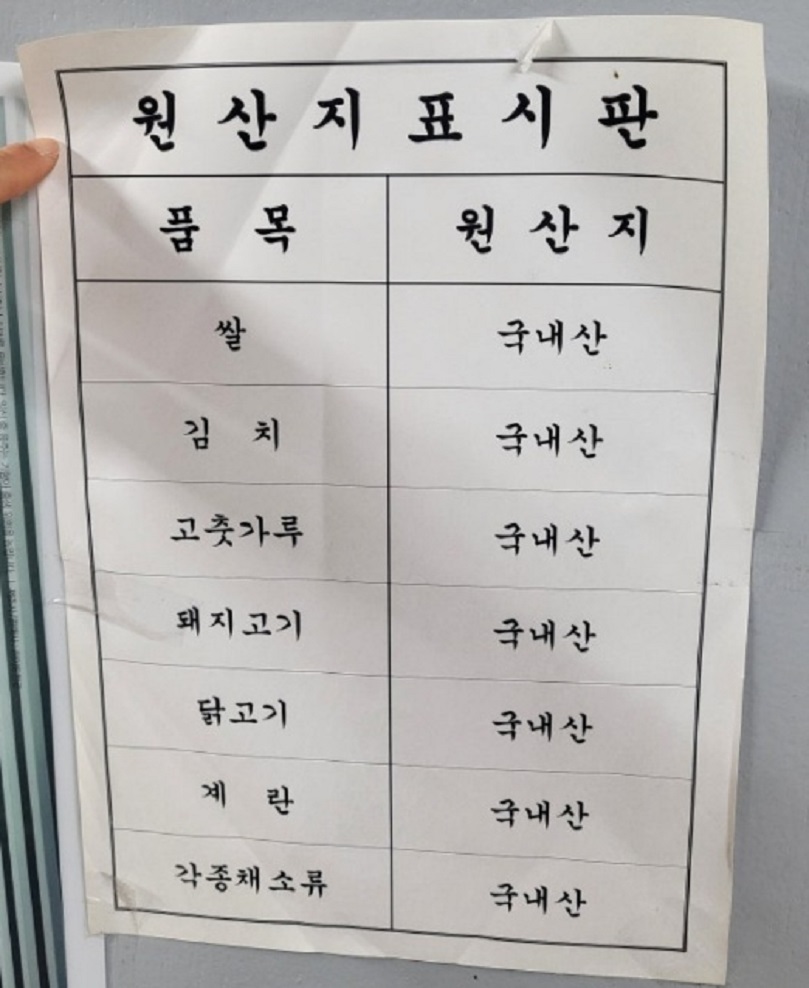 원산지표시판
품목 원산지
쌀 국내산
김치 국내산
고춧가루 국내산
돼지고기 국내산
닭고기 국내산
계란 국내산
각종채소류 국내산